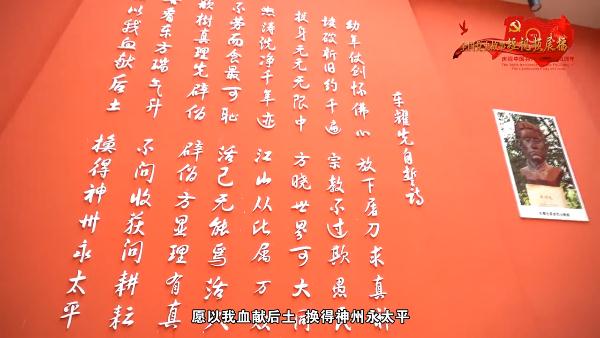 车耀先自誓诗
幼年仗剑怀佛心 放下屠刀求真
破新旧约千遍 宗教不过欺愚
投身元元无限中 方晓世界可大同
涛洗净千年迹 江山从此属万
不劳而食最可耻 活己无能焉活人
树真理先辟伪 辟伪方显理有真
看东方瑞气升 不问收获问耕耘
以我血献后土 换得神州永太平
愿以我血献后土 换得神州永太平